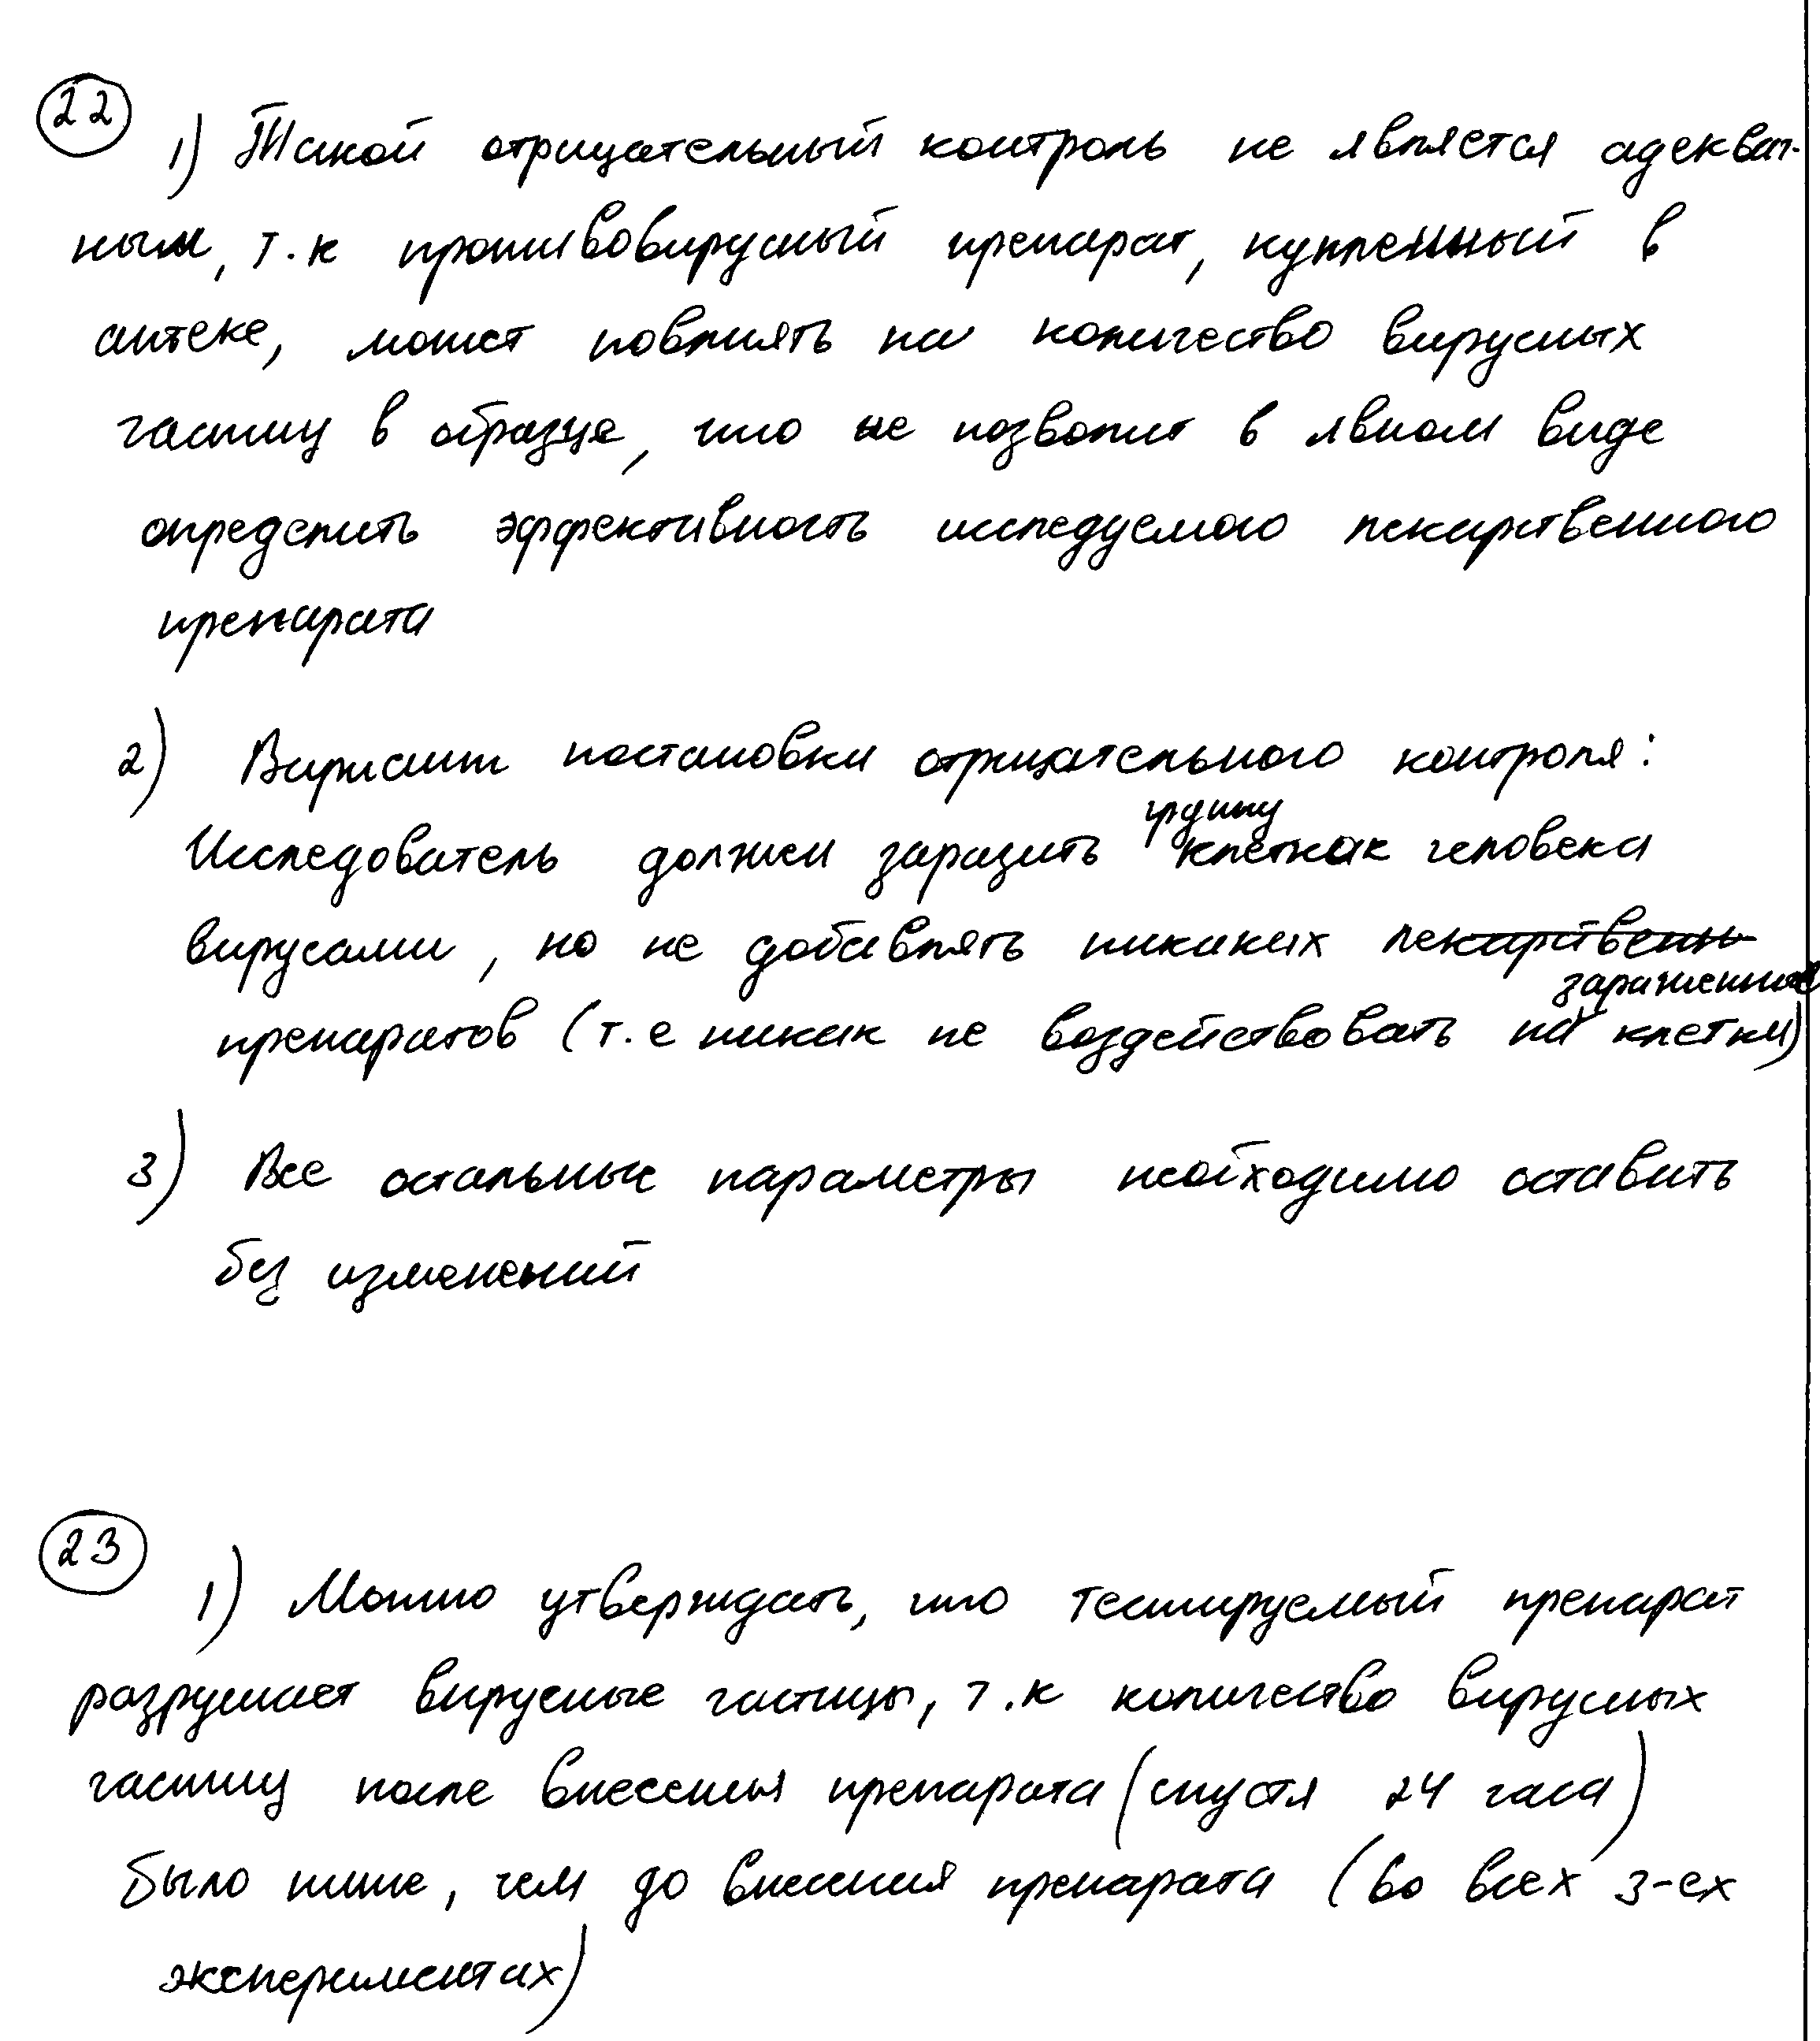 22
1) Такой отрицательный контроль не является адекват-
ным, т.к противовирусный препарат, купленный в
аптеке, может повлиять на количество вирусных
частиц в образце, что не позволит в явном виде
определить эффективность исследуемого лекарственного
препарата
2) Вариант постановки отрицательного контроля:
группу
Исследователь должен заразить клеток человека
вирусами, но не добавлять никаких лекарственн
заражённые
препаратов (т.е никак не воздействовать на клетки)
3) Все остальные параметры необходимо оставить
без изменений
23
1) Можно утверждать, что тестируемый препарат
разрушает вирусные частицы, т.к количество вирусных
частиц после внесения препарата (спустя 24 часа)
было ниже, чем до внесения препарата (во всех 3-ех
экспериментах)